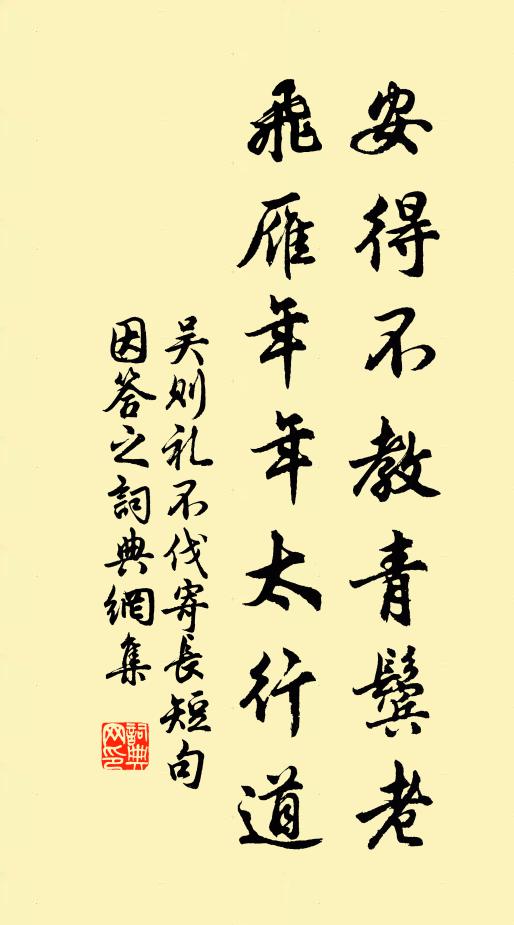 安得不教青鬓老
飛雁年年太行道
吴则礼不伐寄長短句
因答之詞典網集
詞典网印